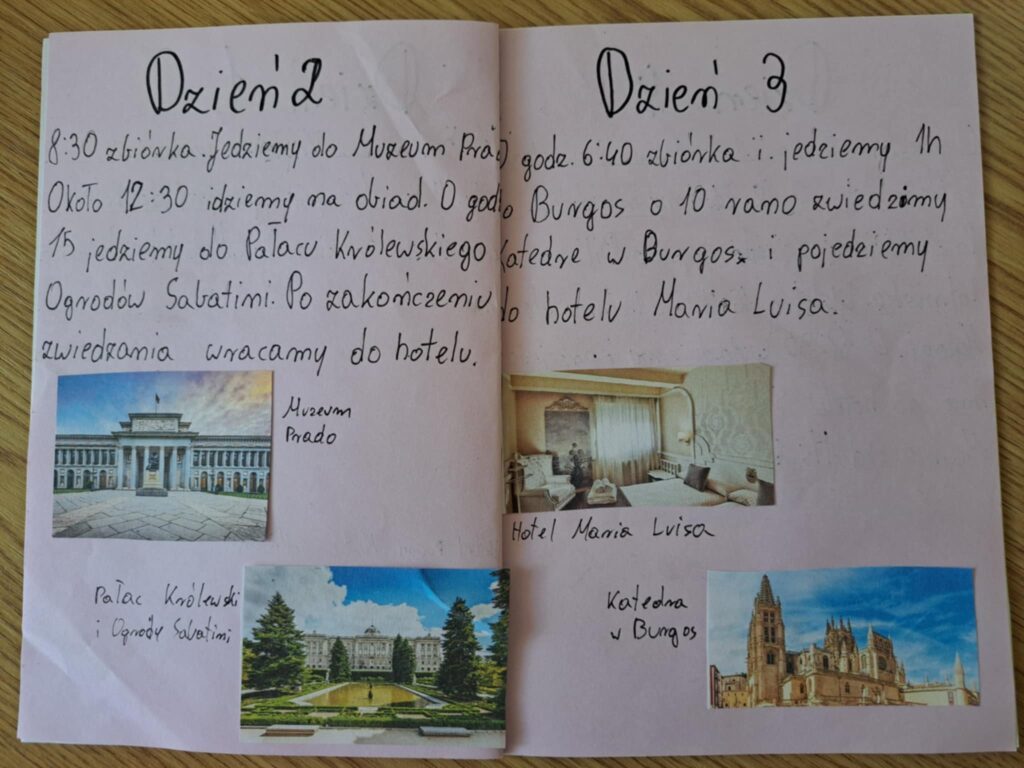 Dzień 2
8:30 zbiórka. Jedziemy do Muzeum Prad
Około 12:30 idziemy na obiad. O god
15 jedziemy do Pałacu Królewskiego
Ogrodów Sabatini. Po zakończeniu
zwiedzania wracamy do hotelu.
Muzeum
Prado
Pałac Królewski
i Ogrody Sabatini
Dzień 3
O godz. 6:40 zbiórka i. jedziemy 1h
do Burgos o 10 rano zwiedzimy
Katedre w Burgos i pojedziemy
do hotelu Maria Luisa.
Hotel Maria Luisa
Katedra
w Burgos